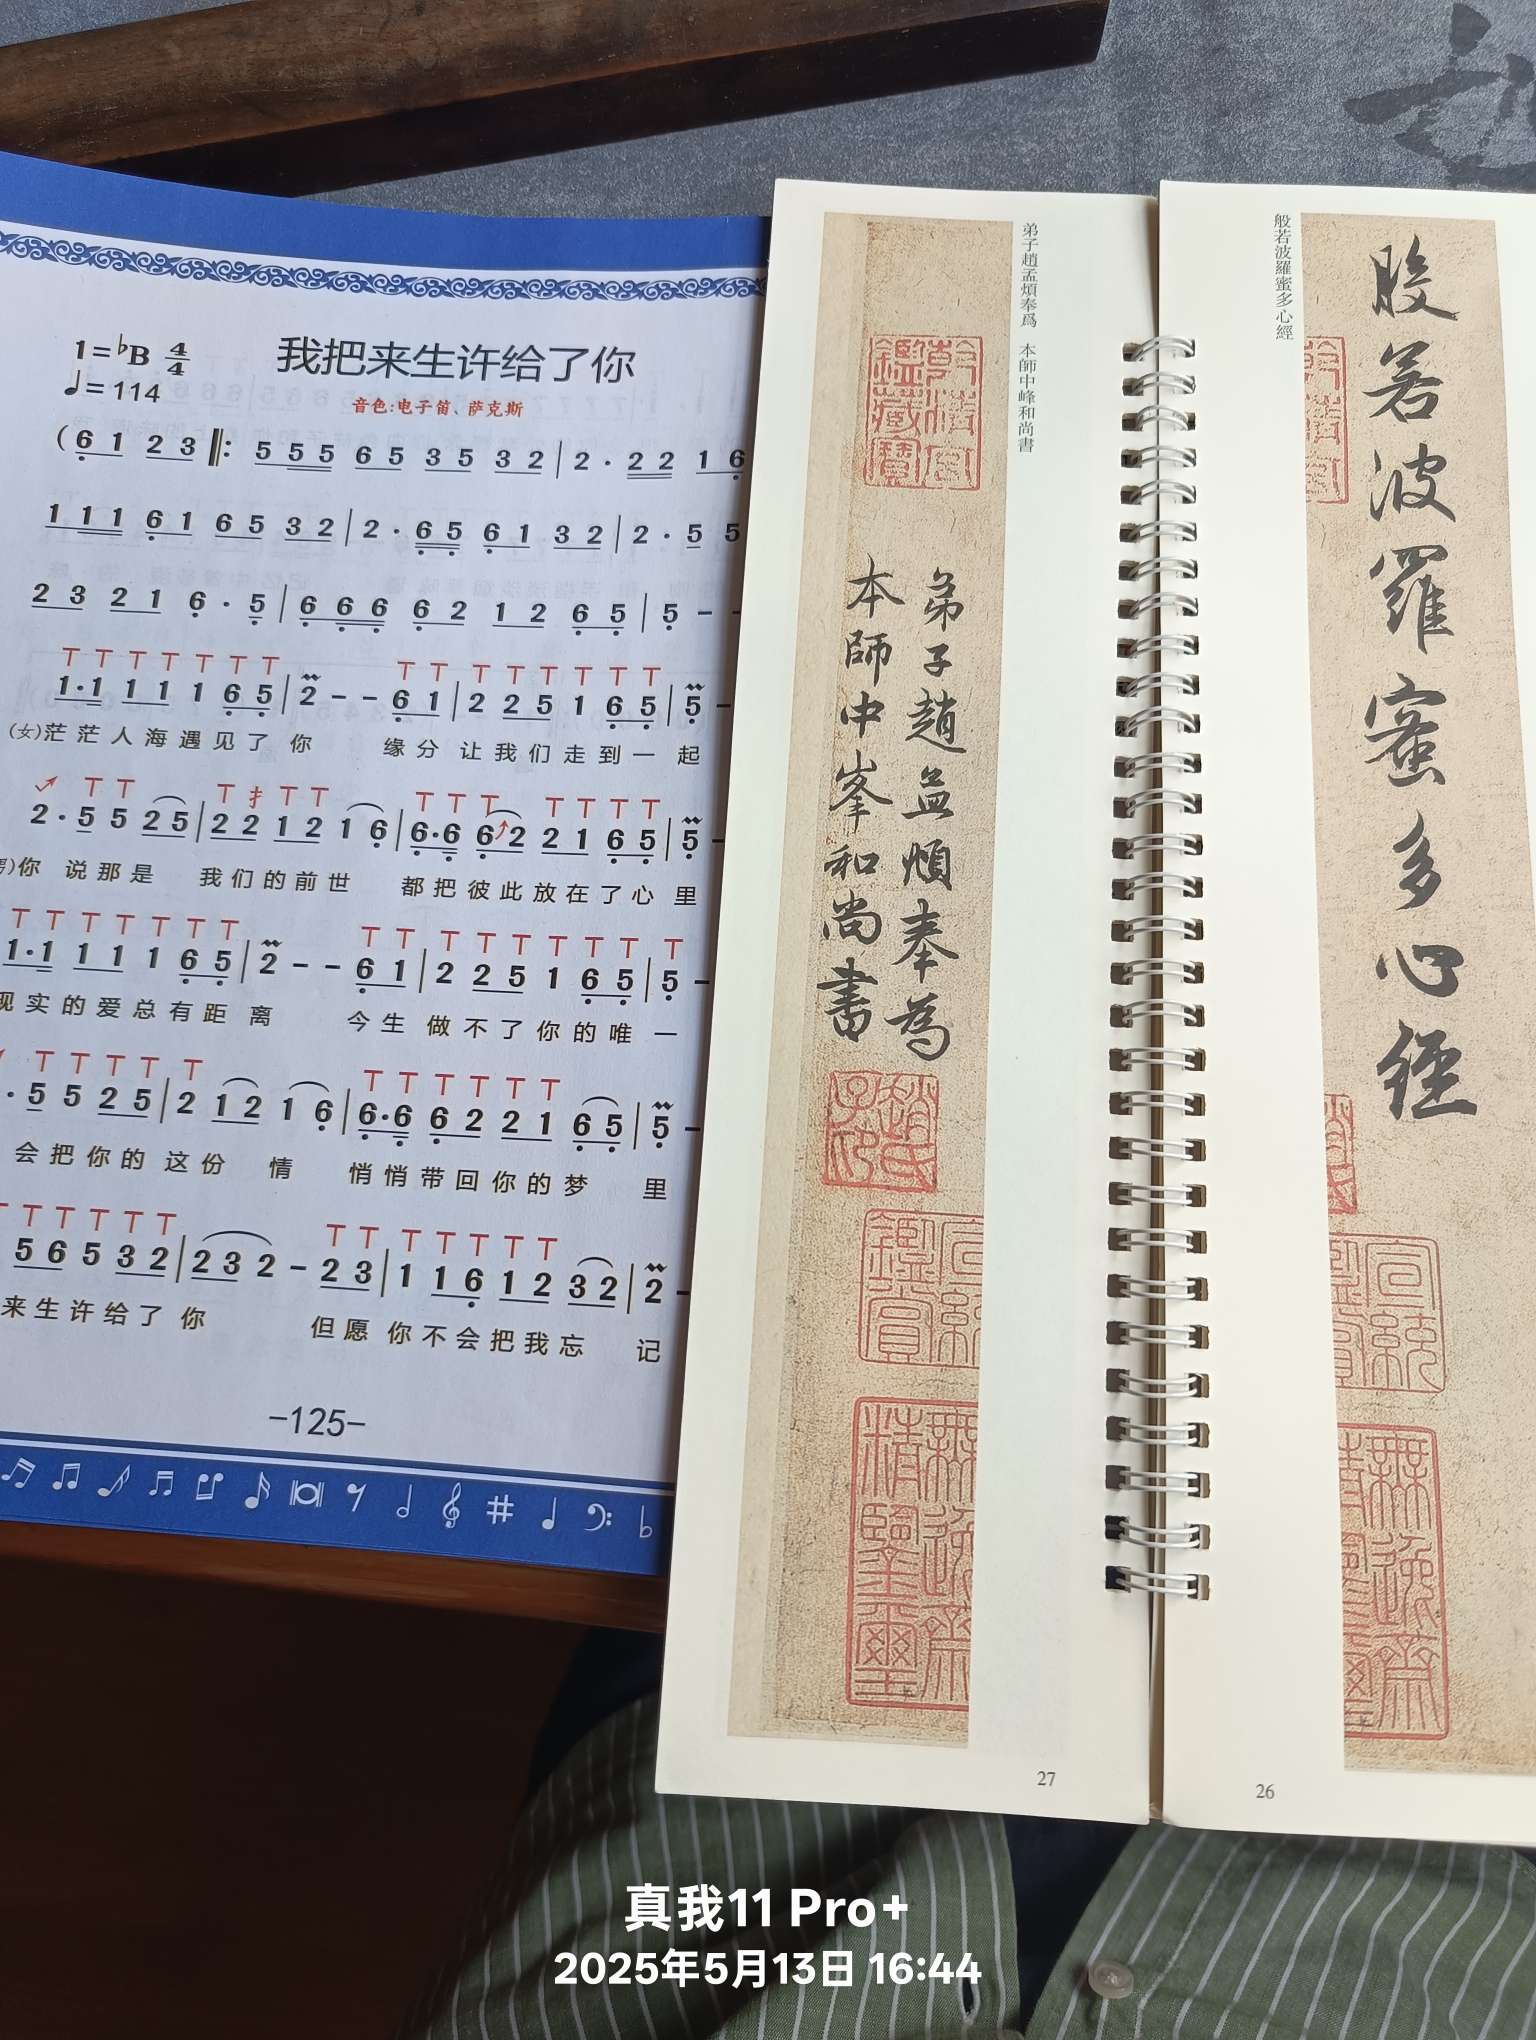 我把来生许给了你
1=♭B 4/4
♩=114
音色:电子笛、萨克斯
(6 1 2 3 ‖: 5 5 5 6 5 3 5 3 2 | 2 · 2 2 1 6
1 1 1 6 1 6 5 3 2 | 2 · 6 5 6 1 3 2 | 2 · 5 5
2 3 2 1 6 · 5 | 6 6 6 6 2 1 2 6 5 | 5 –
T T T T T T T T T T T T T T T
1·1 1 1 1 6 5 | 2 – – 6 1 | 2 2 5 1 6 5 | 5 –
(女)茫茫人海遇见了你 缘分让我们走到一起
T T T 扌 T T T T T T T T T
2 · 5 5 2 5 | 2 2 1 2 1 6 | 6·6 6 2 2 1 6 5 | 5 –
)你 说那是 我们的前世 都把彼此放在了心里
T T T T T T T T T T T T T T T T
1·1 1 1 1 6 5 | 2 – – 6 1 | 2 2 5 1 6 5 | 5 –
现实的爱总有距离 今生做不了你的唯一
T T T T T T T T T T T
· 5 5 2 5 | 2 1 2 1 6 | 6·6 6 2 2 1 6 5 | 5 –
会把你的这份情 悄悄带回你的梦里
T T T T T T T T T T T T
5 6 5 3 2 | 2 3 2 – 2 3 | 1 1 6 1 2 3 2 | 2 –
来生许给了你 但愿你不会把我忘记
-125-
般若波羅蜜多心經
般若波羅蜜多心経
26
弟子趙孟頫奉爲 本師中峰和尚書
弟子趙孟頫奉為
本師中峯和尚書
乾清宮
鑑藏寶
趙氏
子印
宣統
鑑賞
無逸齋
精鑒璽
27
真我11 Pro+
2025年5月13日 16:44